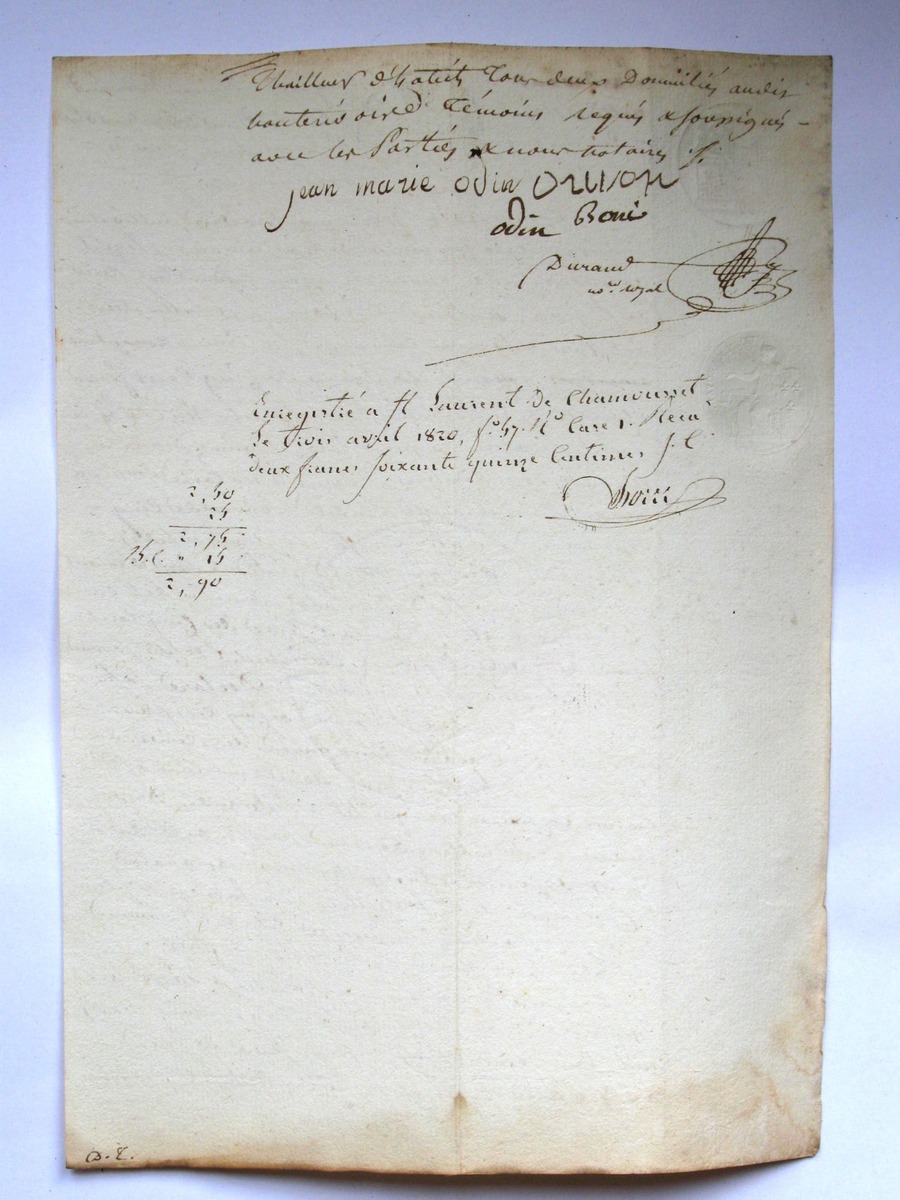 thailleur d'habits tous deux Domiciliés audit
hauterivoire témoins requis & soussignés -
avec les Parties & nous Notaires ./.
jean marie odin
odin
Durand
no.re royal
Enregistré à St Laurent de Chamousset
Le trois avril 1820, f.o 57. N.o Case 1. Recu
deux francs soixante quinze Centimes S. C.
2,50
25
2,75
15
2,90
D.T.